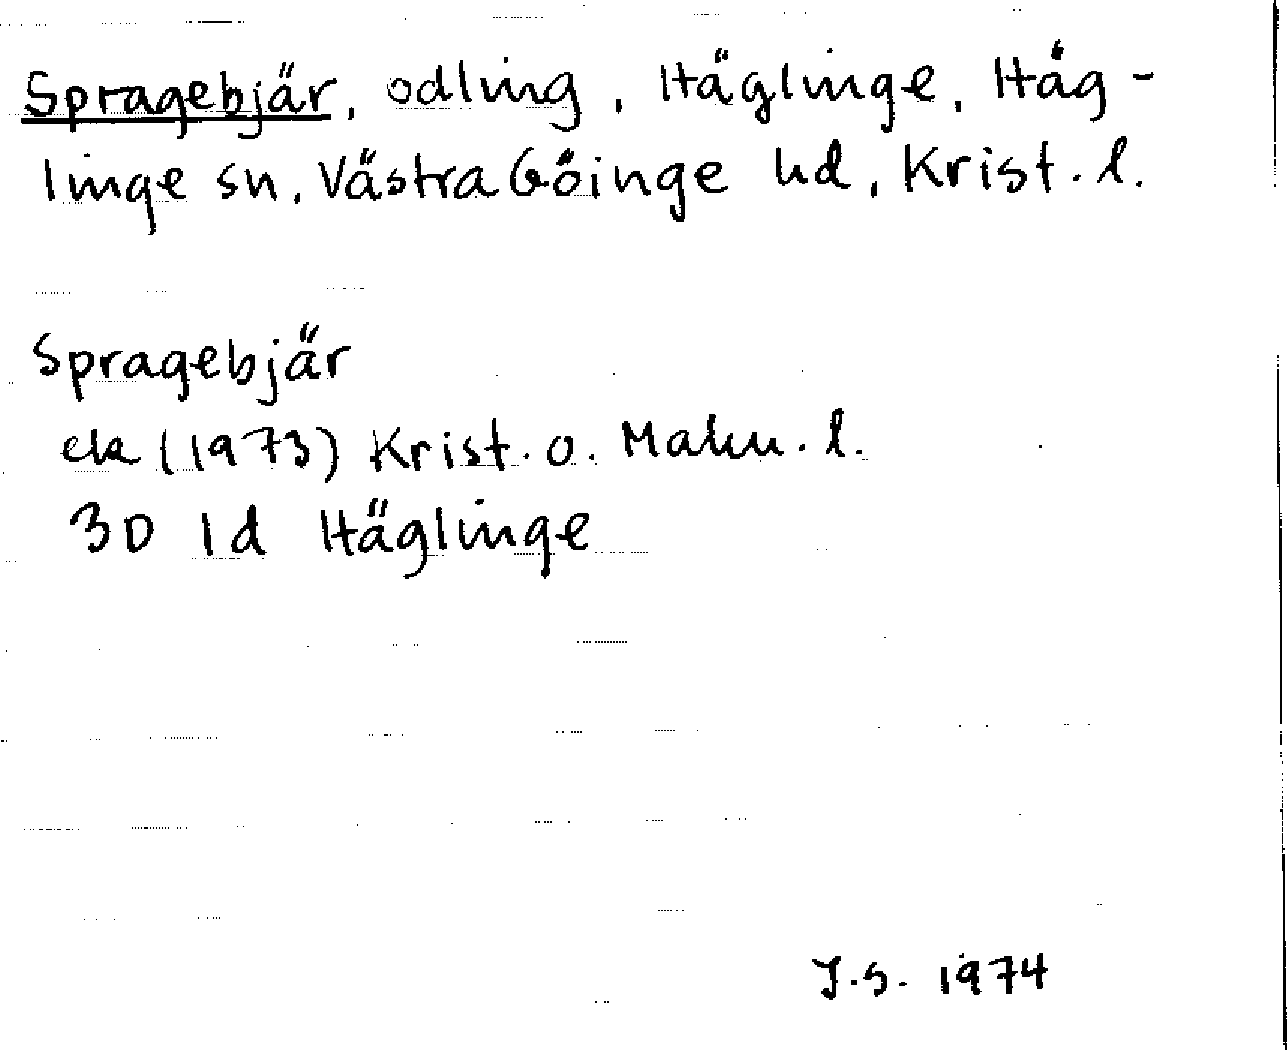 Spragebjär, odling, Häglinge, Häg-
linge sn, Västra Göinge hd, Krist. l.
Spragebjär
ek (1973) Krist. o. Malm. l.
3D 1d Häglinge
J.S. 1974